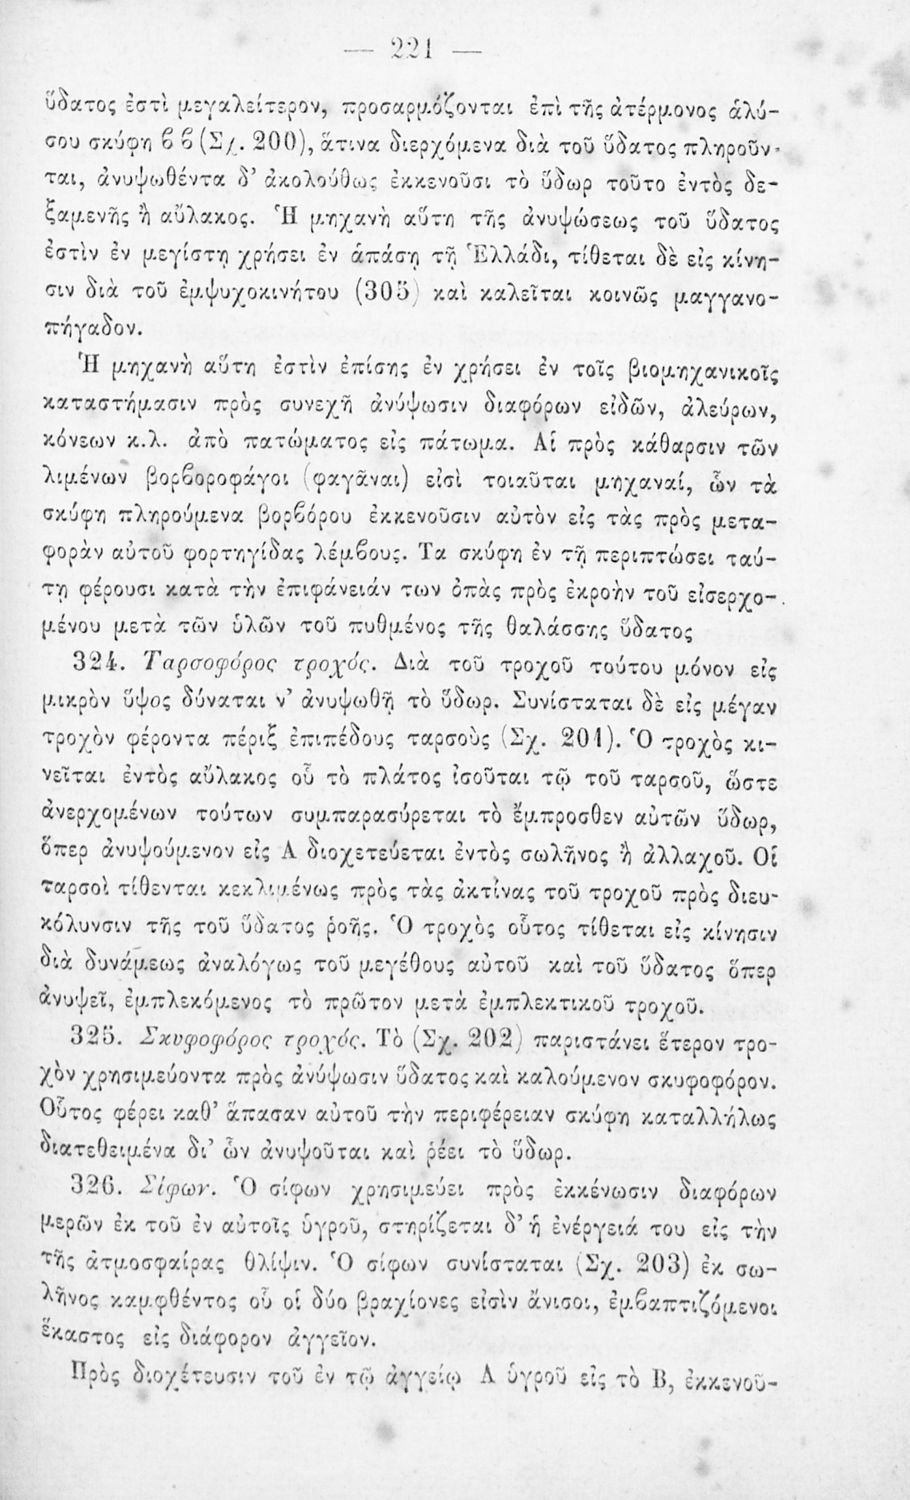 — 221 —
ὕδατος ἐστὶ μεγαλείτερον, προσαρμόζονται ἐπὶ τῆς ἀτέρμονος ἁλύ-
σου σκύφη ϐ ϐ (Σχ. 200), ἅτινα διερχόμενα διὰ τοῦ ὕδατος πληροῦν-
ται, ἀνυψωθέντα δ’ ἀκολούθως ἐκκενοῦσι τὸ ὕδωρ τοῦτο ἐντὸς δε-
ξαμενῆς ἢ αὔλακος. Ἡ μηχανὴ αὕτη τῆς ἀνυψώσεως τοῦ ὕδατος
ἐστὶν ἐν μεγίστῃ χρήσει ἐν ἁπάσῃ τῇ Ἑλλάδι, τίθεται δὲ εἰς κίνη-
σιν διὰ τοῦ ἐμψυχοκινήτου (305) καὶ καλεῖται κοινῶς μαγγανο-
πήγαδον.
Ἡ μηχανὴ αὕτη ἐστὶν ἐπίσης ἐν χρήσει ἐν τοῖς βιομηχανικοῖς
καταστήμασιν πρὸς συνεχῆ ἀνύψωσιν διαφόρων εἰδῶν, ἀλεύρων,
κόνεων κ.λ. ἀπὸ πατώματος εἰς πάτωμα. Αἱ πρὸς κάθαρσιν τῶν
λιμένων βορϐοροφάγοι (φαγᾶναι) εἰσὶ τοιαῦται μηχαναί, ὧν τὰ
σκύφη πληρούμενα βορϐόρου ἐκκενοῦσιν αὐτὸν εἰς τὰς πρὸς μετα-
φορὰν αὐτοῦ φορτηγίδας λέμϐους. Τα σκύφη ἐν τῇ περιπτώσει ταύ-
τῃ φέρουσι κατὰ τὴν ἐπιφάνειάν των ὀπὰς πρὸς ἐκροὴν τοῦ εἰσερχο-
μένου μετὰ τῶν ὑλῶν τοῦ πυθμένος τῆς θαλάσσης ὕδατος
324. Ταρσοφόρος τροχός. Διὰ τοῦ τροχοῦ τούτου μόνον εἰς
μικρὸν ὕψος δύναται ν’ ἀνυψωθῇ τὸ ὕδωρ. Συνίσταται δὲ εἰς μέγαν
τροχὸν φέροντα πέριξ ἐπιπέδους ταρσοὺς (Σχ. 201). Ὁ τροχὸς κι-
νεῖται ἐντὸς αὔλακος οὗ τὸ πλάτος ἰσοῦται τῷ τοῦ ταρσοῦ, ὥστε
ἀνερχομένων τούτων συμπαρασύρεται τὸ ἔμπροσθεν αὐτῶν ὕδωρ,
ὅπερ ἀνυψούμενον εἰς Α διοχετεύεται ἐντὸς σωλῆνος ἢ ἀλλαχοῦ. Οἱ
ταρσοὶ τίθενται κεκλιμένως πρὸς τὰς ἀκτῖνας τοῦ τροχοῦ πρὸς διευ-
κόλυνσιν τῆς τοῦ ὕδατος ῥοῆς. Ὁ τροχὸς οὗτος τίθεται εἰς κίνησιν
διὰ δυνάμεως ἀναλόγως τοῦ μεγέθους αὐτοῦ καὶ τοῦ ὕδατος ὅπερ
ἀνυψεῖ, ἐμπλεκόμενος τὸ πρῶτον μετὰ ἐμπλεκτικοῦ τροχοῦ.
325. Σκυφοφόρος τροχός. Τὸ (Σχ. 202) παριστάνει ἕτερον τρο-
χὸν χρησιμεύοντα πρὸς ἀνύψωσιν ὕδατος καὶ καλούμενον σκυφοφόρον.
Οὗτος φέρει καθ’ ἅπασαν αὐτοῦ τὴν περιφέρειαν σκύφη καταλλήλως
διατεθειμένα δι’ ὧν ἀνυψοῦται καὶ ῥέει τὸ ὕδωρ.
326. Σίφων. Ὁ σίφων χρησιμεύει πρὸς ἐκκένωσιν διαφόρων
μερῶν ἐκ τοῦ ἐν αὐτοῖς ὑγροῦ, στηρίζεται δ’ ἡ ἐνέργειά του εἰς τὴν
τῆς ἀτμοσφαίρας θλίψιν. Ὁ σίφων συνίσταται (Σχ. 203) ἐκ σω-
λῆνος καμφθέντος οὗ οἱ δύο βραχίονες εἰσὶν ἄνισοι, ἐμϐαπτιζόμενοι
ἕκαστος εἰς διάφορον ἀγγεῖον.
Πρὸς διοχέτευσιν τοῦ ἐν τῷ ἀγγείῳ Α ὑγροῦ εἰς τὸ Β, ἐκκενοῦ-